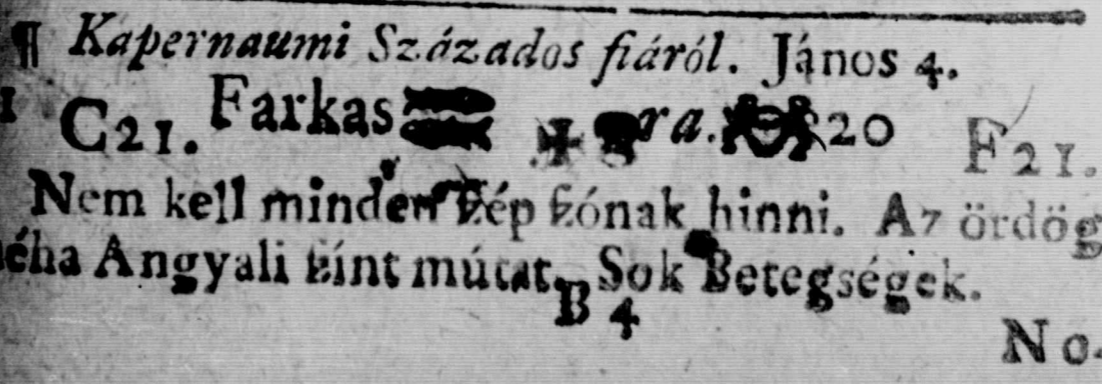 ¶ Kapernaumi Százados fiáról. János 4.
C21. Farkas ra. 20 F21.
Nem kell minden ſzép ſzónak hinni. Az ördög
néha Angyali ſzínt mútat. Sok Betegségek.
B 4
No-